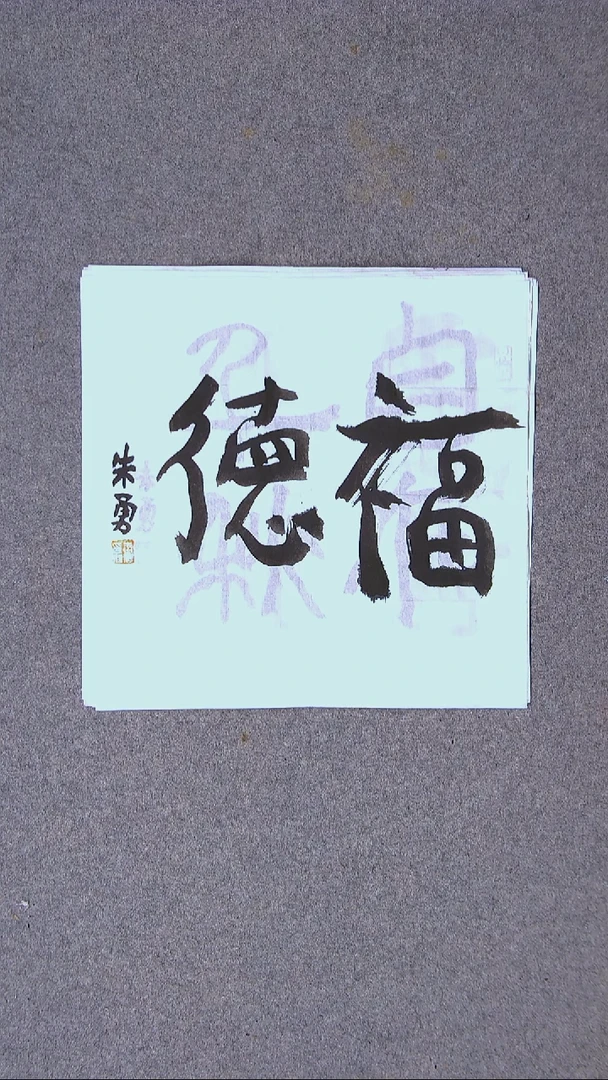 福德
朱勇